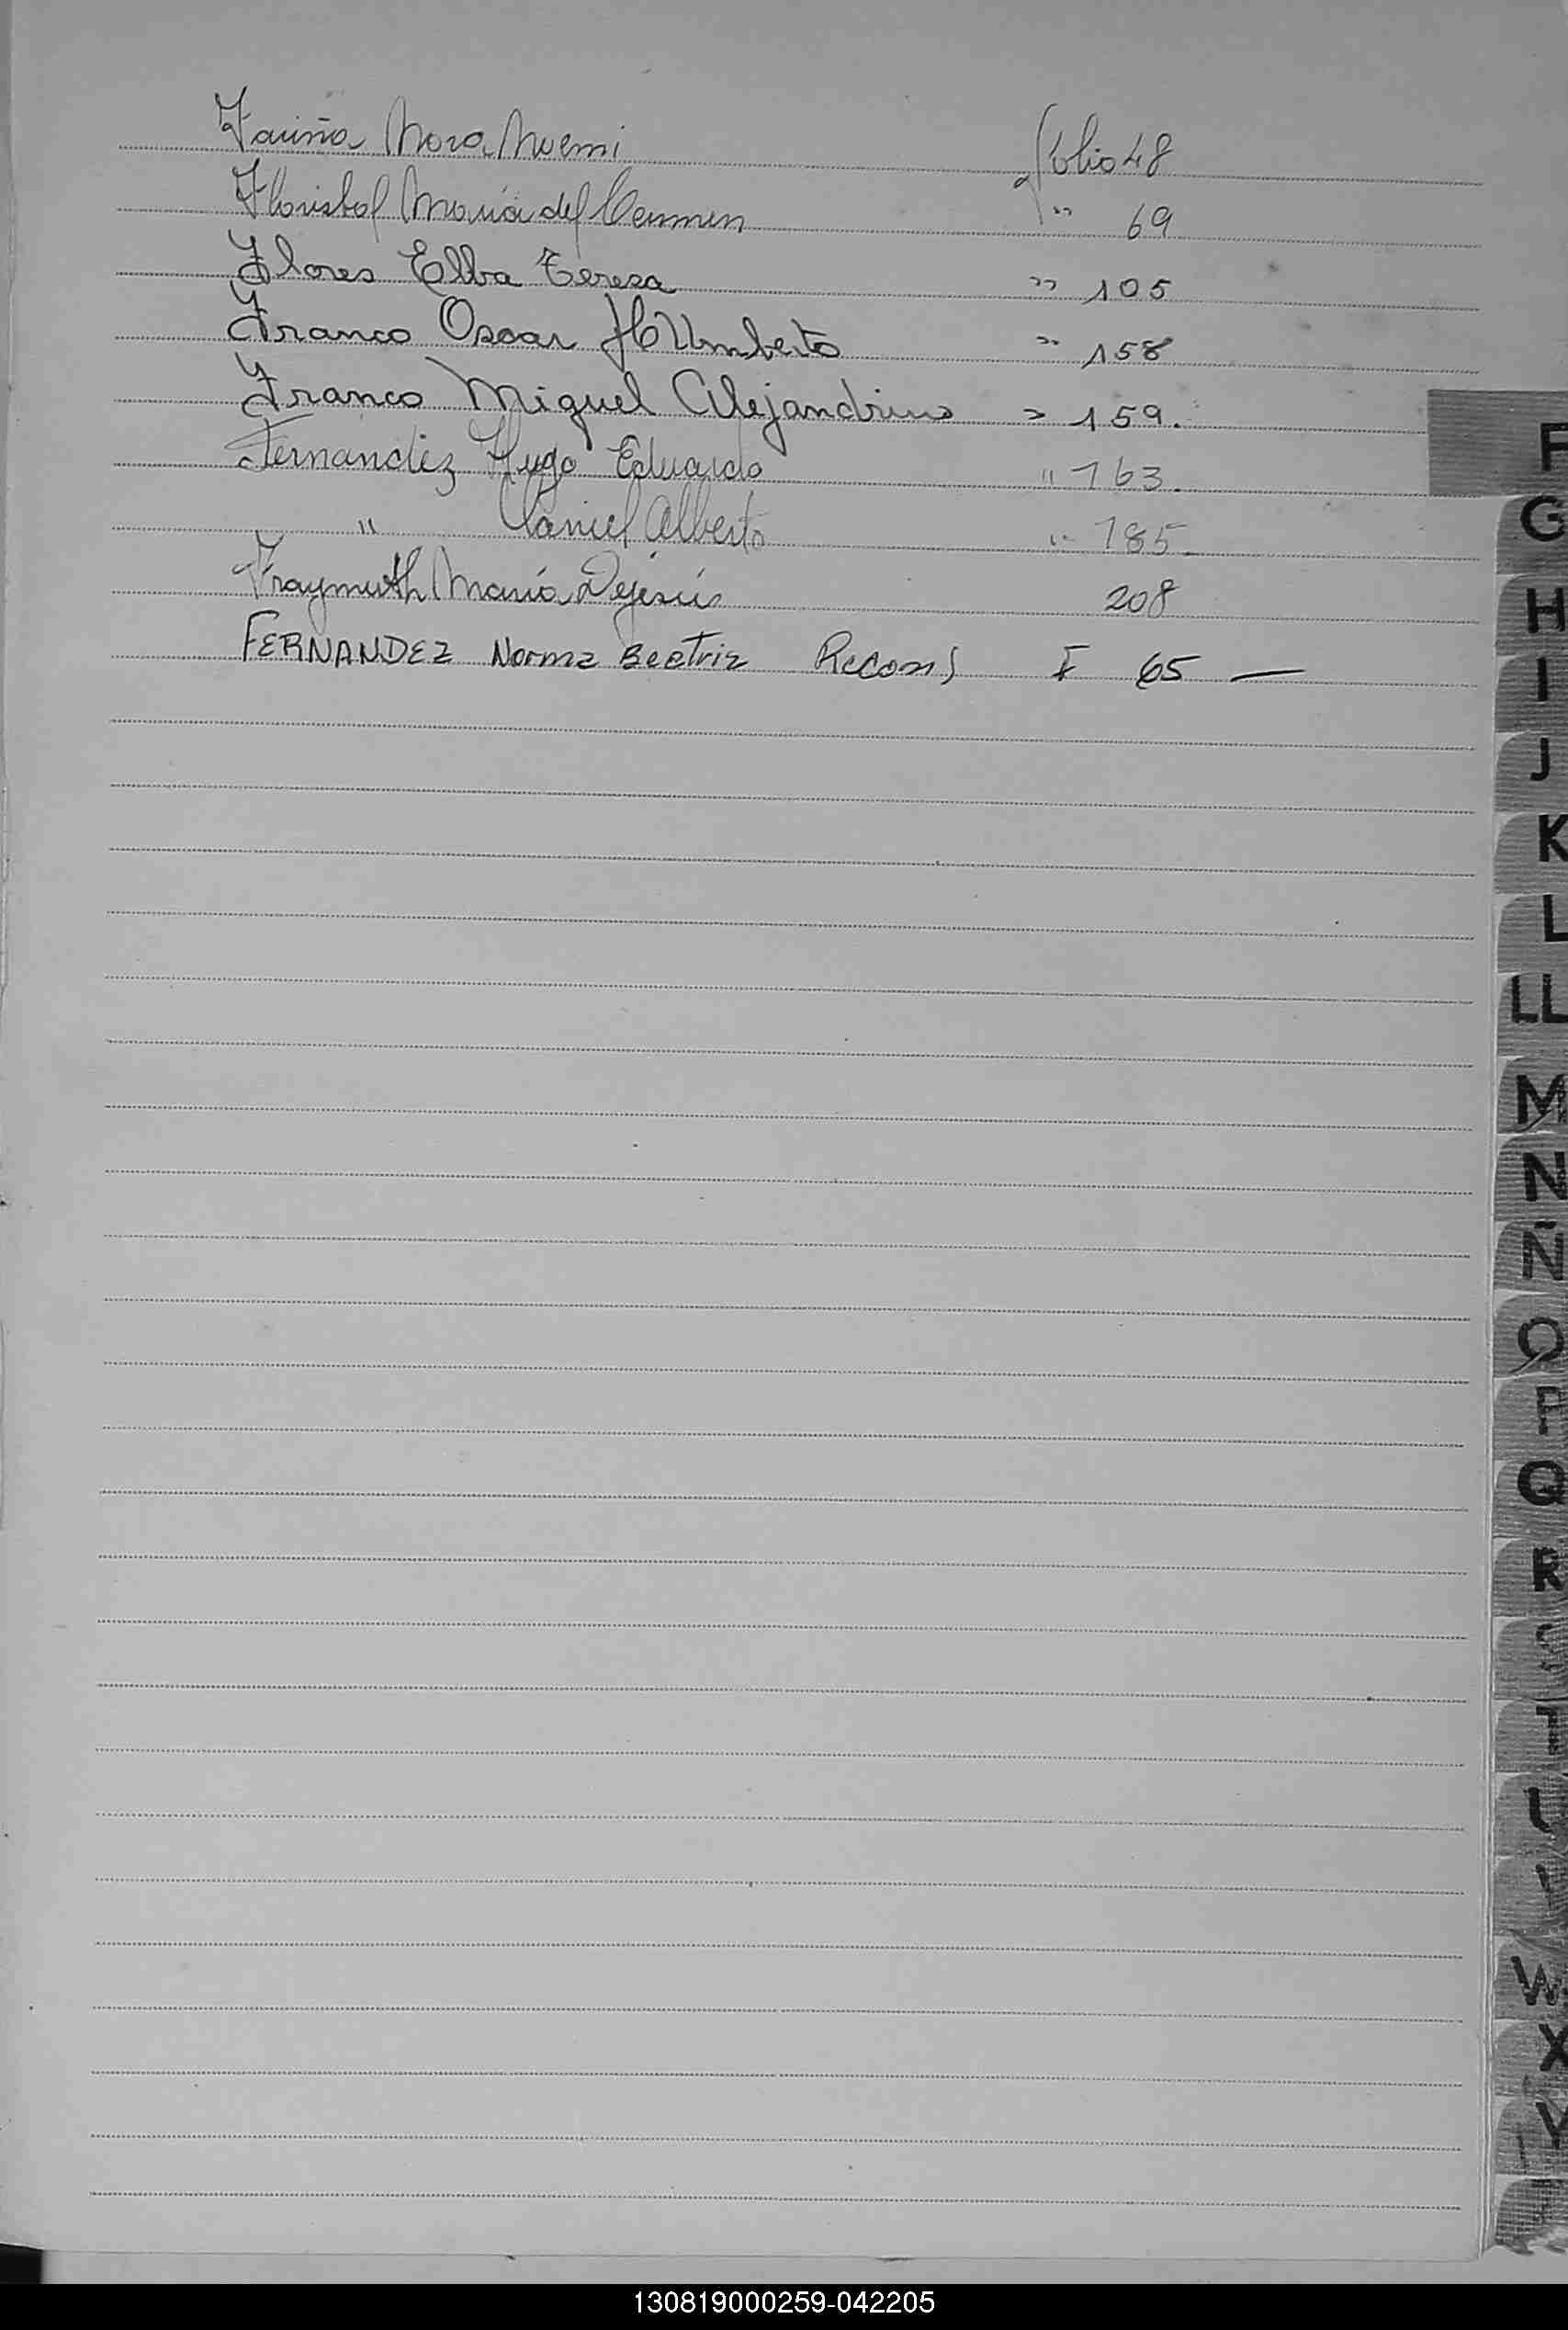 Fariña Nora Noemi Folio 48
Floristal Maria del Carmen " 69
Flores Elba Teresa " 105
Franco Oscar HUmberto " 158
Franco Miguel Alejandrino " 159.
Fernandez Hugo Eduardo " 163.
" Daniel Alberto " 185.
Fraymuth María Dejesús 208
FERNANDEZ Norma Beatriz Recons F 65 —
F
G
H
I
J
K
L
LL
M
N
Ñ
O
P
Q
R
S
T
U
V
W
X
Y
130819000259-042205